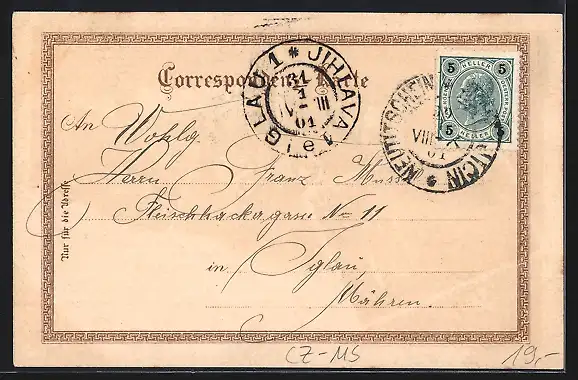 Correspondenz-Karte
IGLAU 1 * JIHLAVA 1 * e
31
1
VIII
01
5 HELLER 5
5 HELLER 5
NEUTITSCHEIN * JIČIN
VIII
01
An Wohlg.
Herrn Franz
Fleischhackergasse No 11
in Iglau
Mähren.
Nur für die Adresse
CZ-MS
19,-